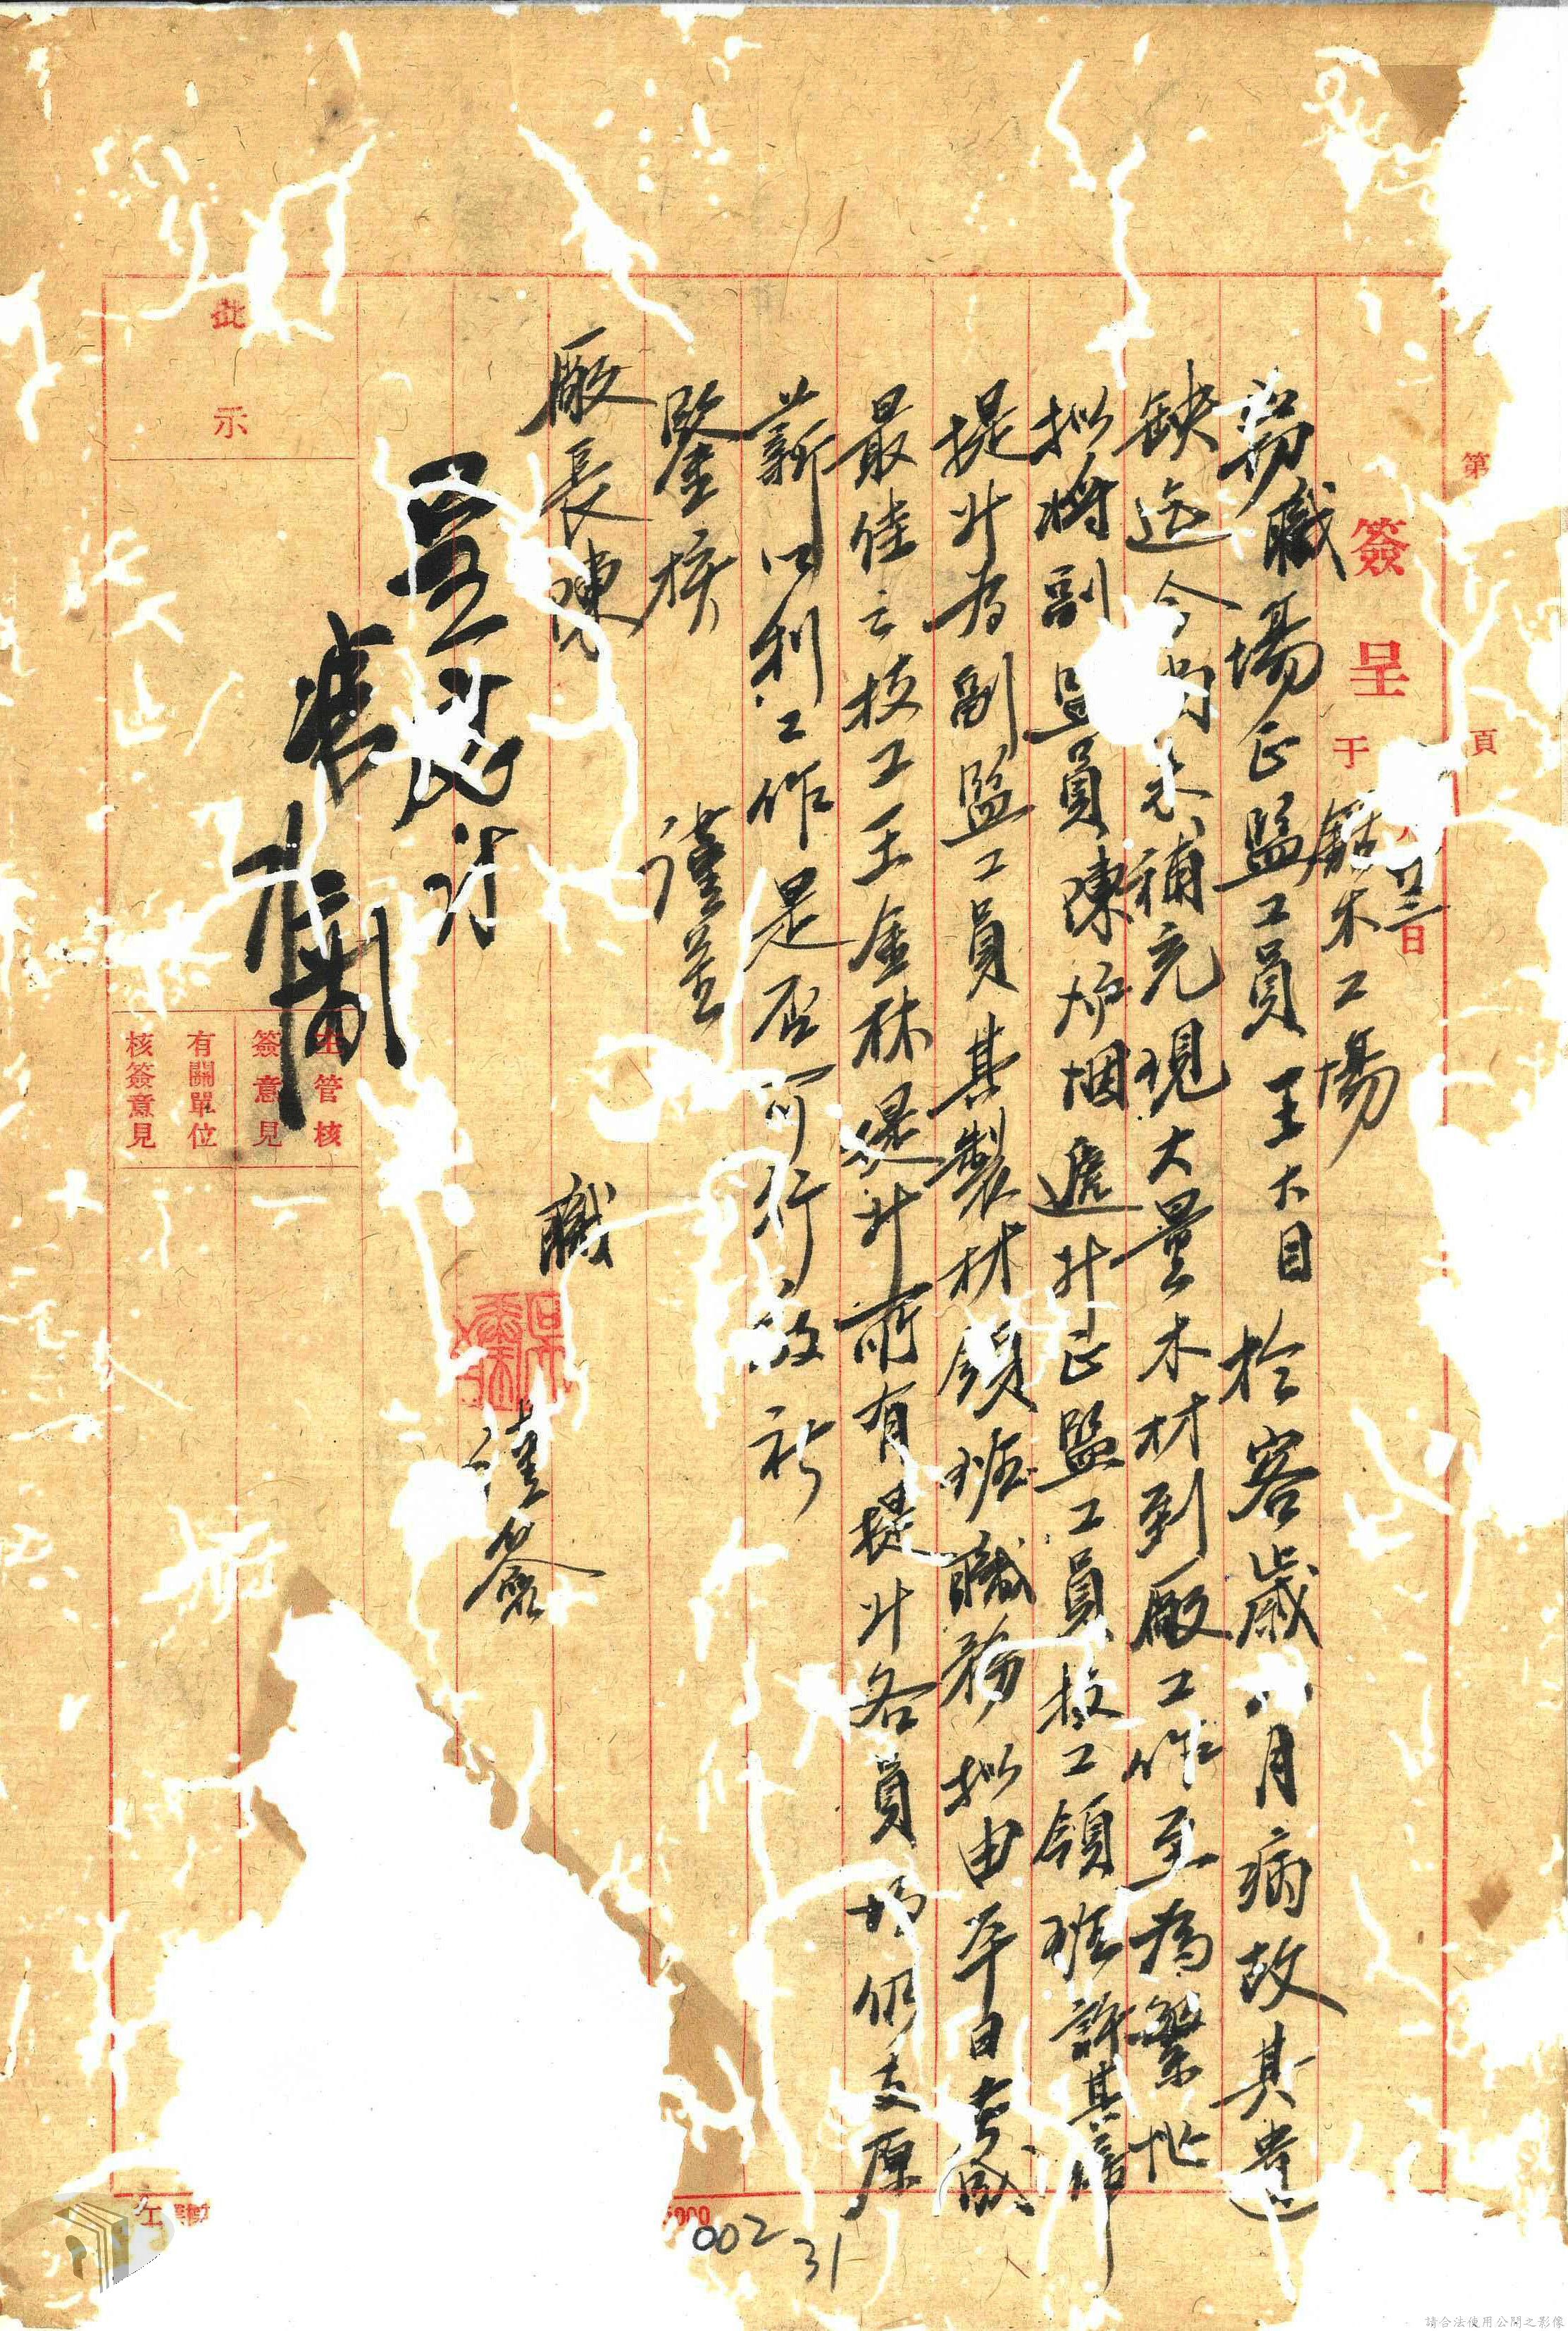 第 頁
簽呈 于 廿二日
鋸木工場
竊職場正監工員王大目於客歲八月病故其遺
缺迄今尚未補充現大量木材到廠工作至為繁忙
擬將副監員陳炳烟遞升正監工員技工領班許其
提升為副監工員其製材領班職務擬由平日考成
最佳之技工王金林提升所有提升各員均仍支原
薪以利工作是否可行敬祈
鑒核
謹簽
廠長陳
職 謹簽
批示
主管核簽意見
有關單位核簽意見
002
31
請合法使用公開之影像